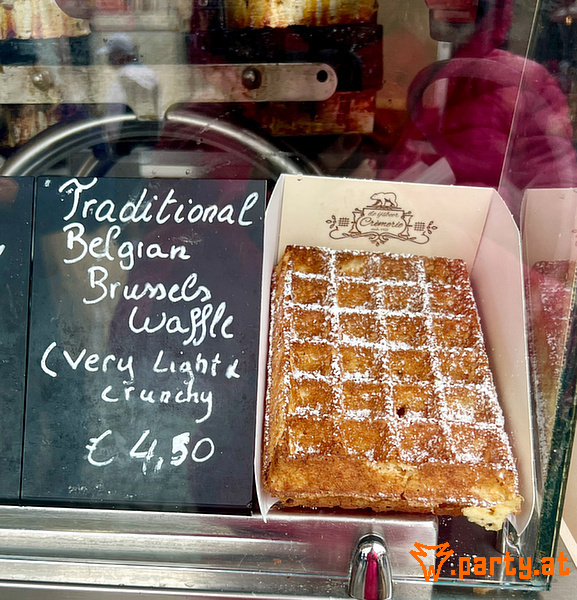 Traditional
Belgian
Brussels
Waffle
(very Light &
crunchy
€ 4,50
Crèmerie
.party.at